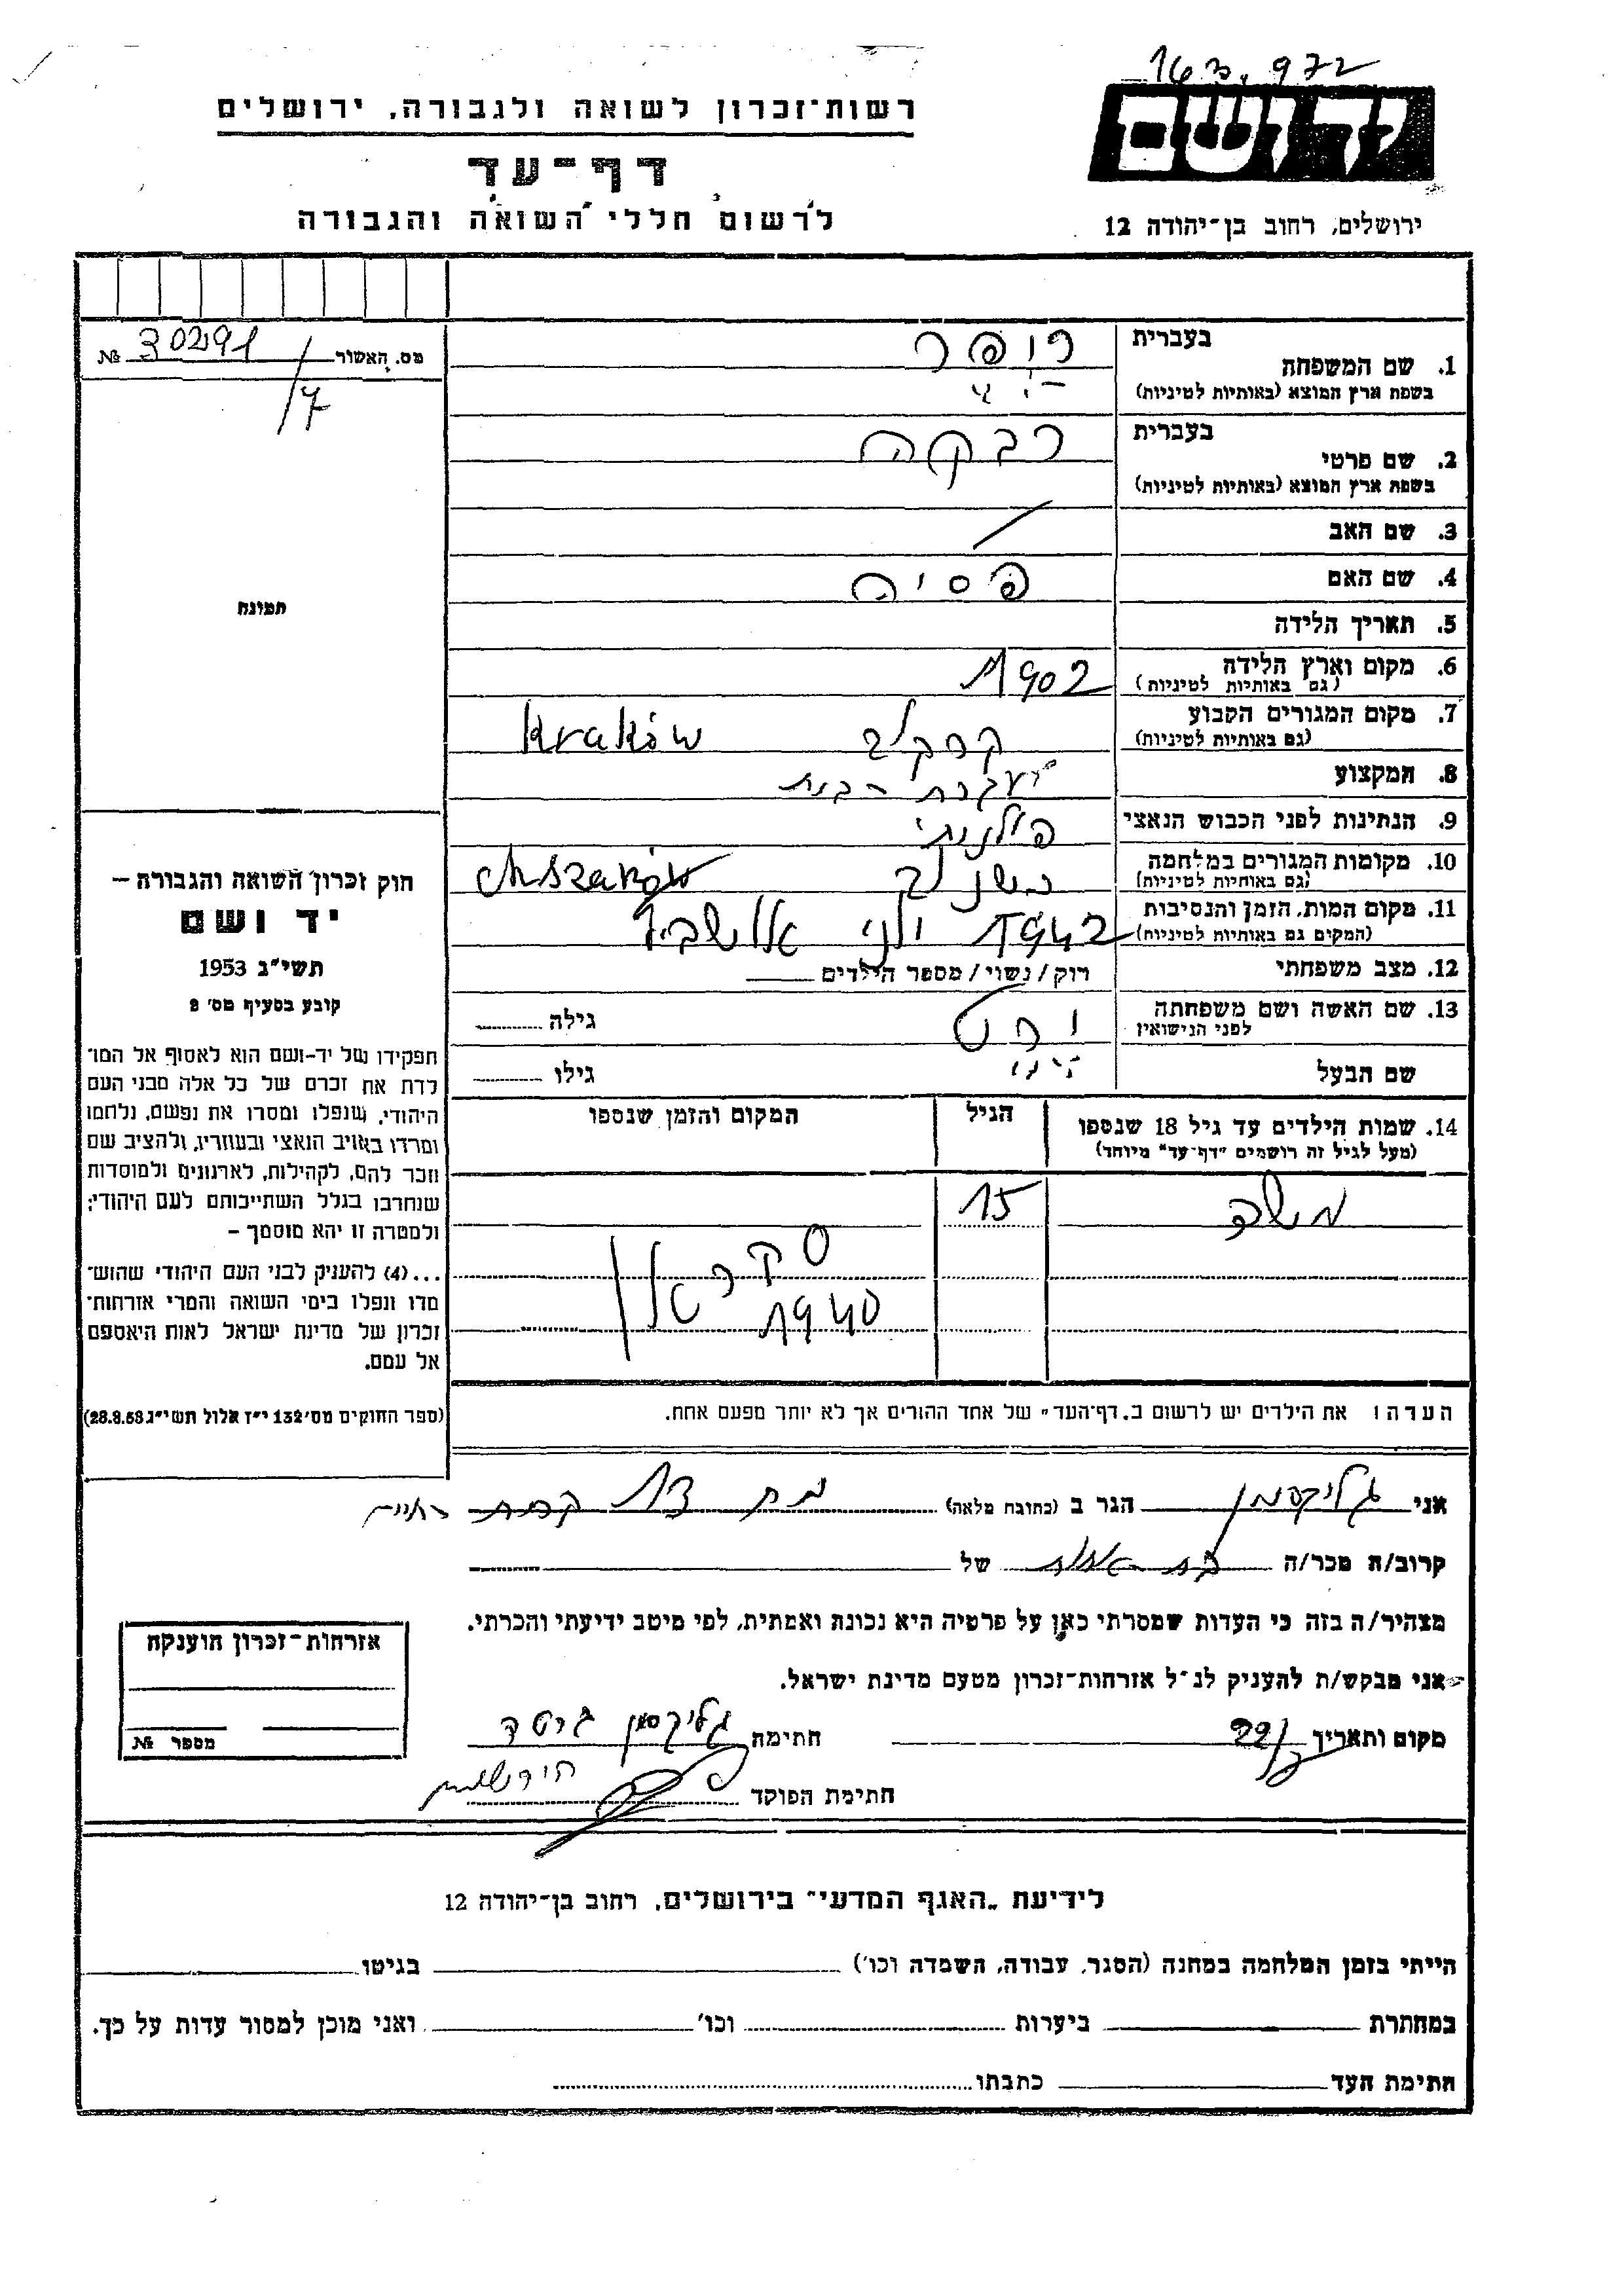 163.972
יד ושם
רשות-זכרון לשואה ולגבורה, ירושלים
דף-עד
לרשום חללי השואה והגבורה
ירושלים, רחוב בן-יהודה 12
מס. האשור 30291 №
/7
תמונה
חוק זכרון השואה והגבורה –
יד ושם
תשי"ג 1953
קובע בסעיף מס' 2
תפקידו של יד-ושם הוא לאסוף אל המו־
לדת את זכרם של כל אלה מבני העם
היהודי, שנפלו ומסרו את נפשם, נלחמו
ומרדו באויב הנאצי ובעוזריו, ולהציב שם
וזכר להם, לקהילות, לארגונים ולמוסדות
שנחרבו בגלל השתייכותם לעם היהודי;
ולמטרה זו יהא מוסמך –
...(4) להעניק לבני העם היהודי שהוש־
מדו ונפלו בימי השואה והמרי אזרחות־
זכרון של מדינת ישראל לאות היאספם
אל עמם.
(ספר החוקים מס' 132 י"ז אלול תשי"ג 28.8.53)
בעברית
1. שם המשפחה רופר
בשפת ארץ המוצא (באותיות לטיניות)
בעברית
2. שם פרטי רבקה
בשפת ארץ המוצא (באותיות לטיניות)
3. שם האב /
4. שם האם פסיה
5. תאריך הלידה
6. מקום וארץ הלידה 1902
(גם באותיות לטיניות)
7. מקום המגורים הקבוע Kraków
(גם באותיות לטיניות)
8. המקצוע עקרת בית
9. הנתינות לפני הכבוש הנאצי פולנית
10. מקומות המגורים במלחמה
(גם באותיות לטיניות)
11. מקום המות, הזמן והנסיבות 1942 יולי אושביץ
(המקום גם באותיות לטיניות)
12. מצב משפחתי רוק / נשוי / מספר הילדים
13. שם האשה ושם משפחתה גילה
לפני הנישואין
שם הבעל גילו
14. שמות הילדים עד גיל 18 שנספו הגיל המקום והזמן שנספו
(מעל לגיל זה רושמים "דף-עד" מיוחד)
משה 15
1940
הערה: את הילדים יש לרשום ב"דף-העד" של אחד ההורים אך לא יותר מפעם אחת.
אני גליקסמן הגר ב (כתובת מלאה) 13 קרית
קרוב/ה מכר/ה בת אחות של
מצהיר/ה בזה כי העדות שמסרתי כאן על פרטיה היא נכונה ואמתית, לפי מיטב ידיעתי והכרתי.
אני מבקש/ת להעניק לנ"ל אזרחות-זכרון מטעם מדינת ישראל.
מקום ותאריך 22/ חתימה גליקסמן
חתימת הפוקד
אזרחות-זכרון הוענקה
מספר №
לידיעת "האגף המדעי" בירושלים, רחוב בן-יהודה 12
הייתי בזמן המלחמה במחנה (הסגר, עבודה, השמדה וכו') בגיטו
במחתרת ביערות וכו' ואני מוכן למסור עדות על כך.
חתימת העד כתבתו